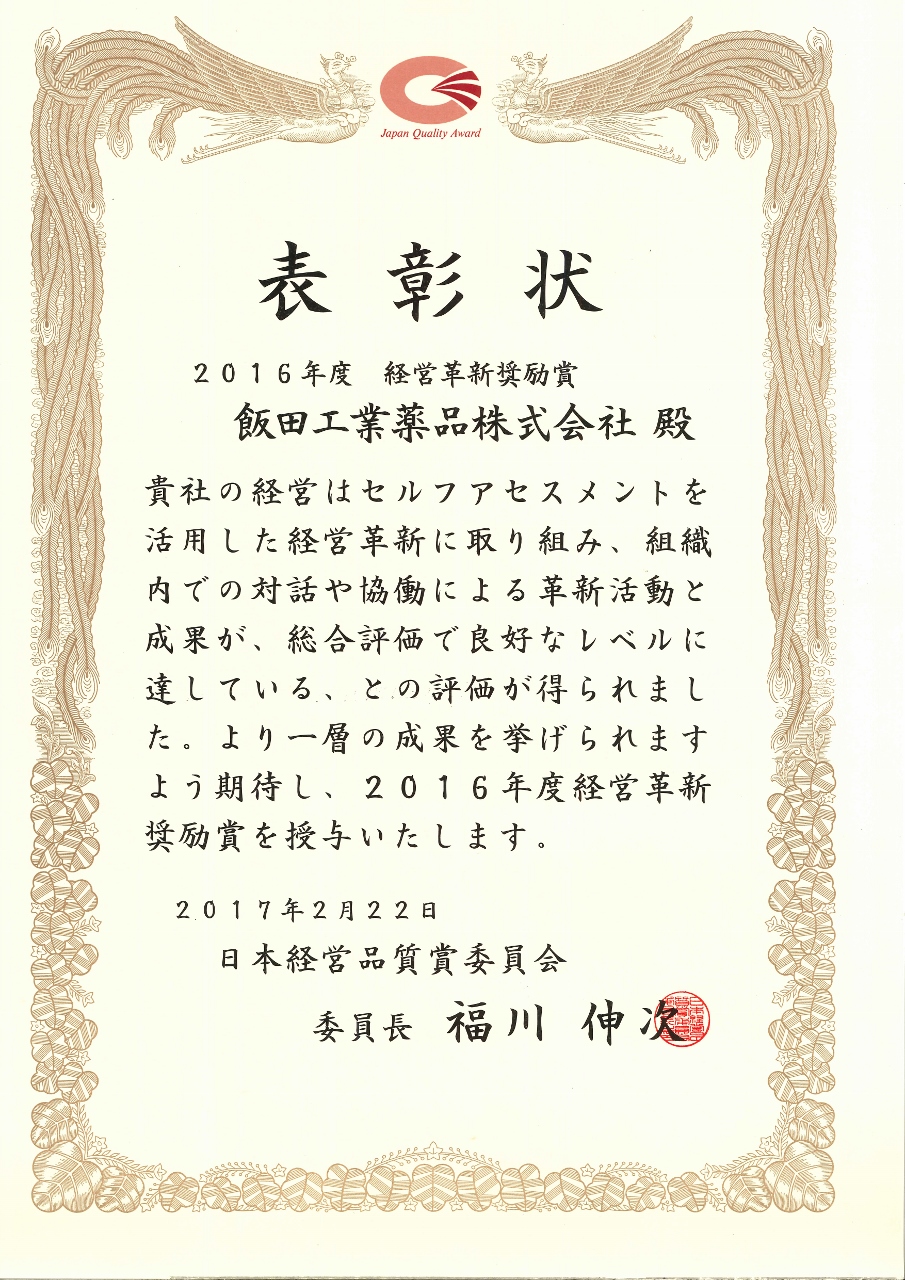 Japan Quality Award
表彰状
2016年度 経営革新奨励賞
飯田工業薬品株式会社 殿
貴社の経営はセルフアセスメントを
活用した経営革新に取り組み、組織
内での対話や協働による革新活動と
成果が、総合評価で良好なレベルに
達している、との評価が得られまし
た。より一層の成果を挙げられます
よう期待し、2016年度経営革新
奨励賞を授与いたします。
2017年2月22日
日本経営品質賞委員会
委員長 福川 伸次